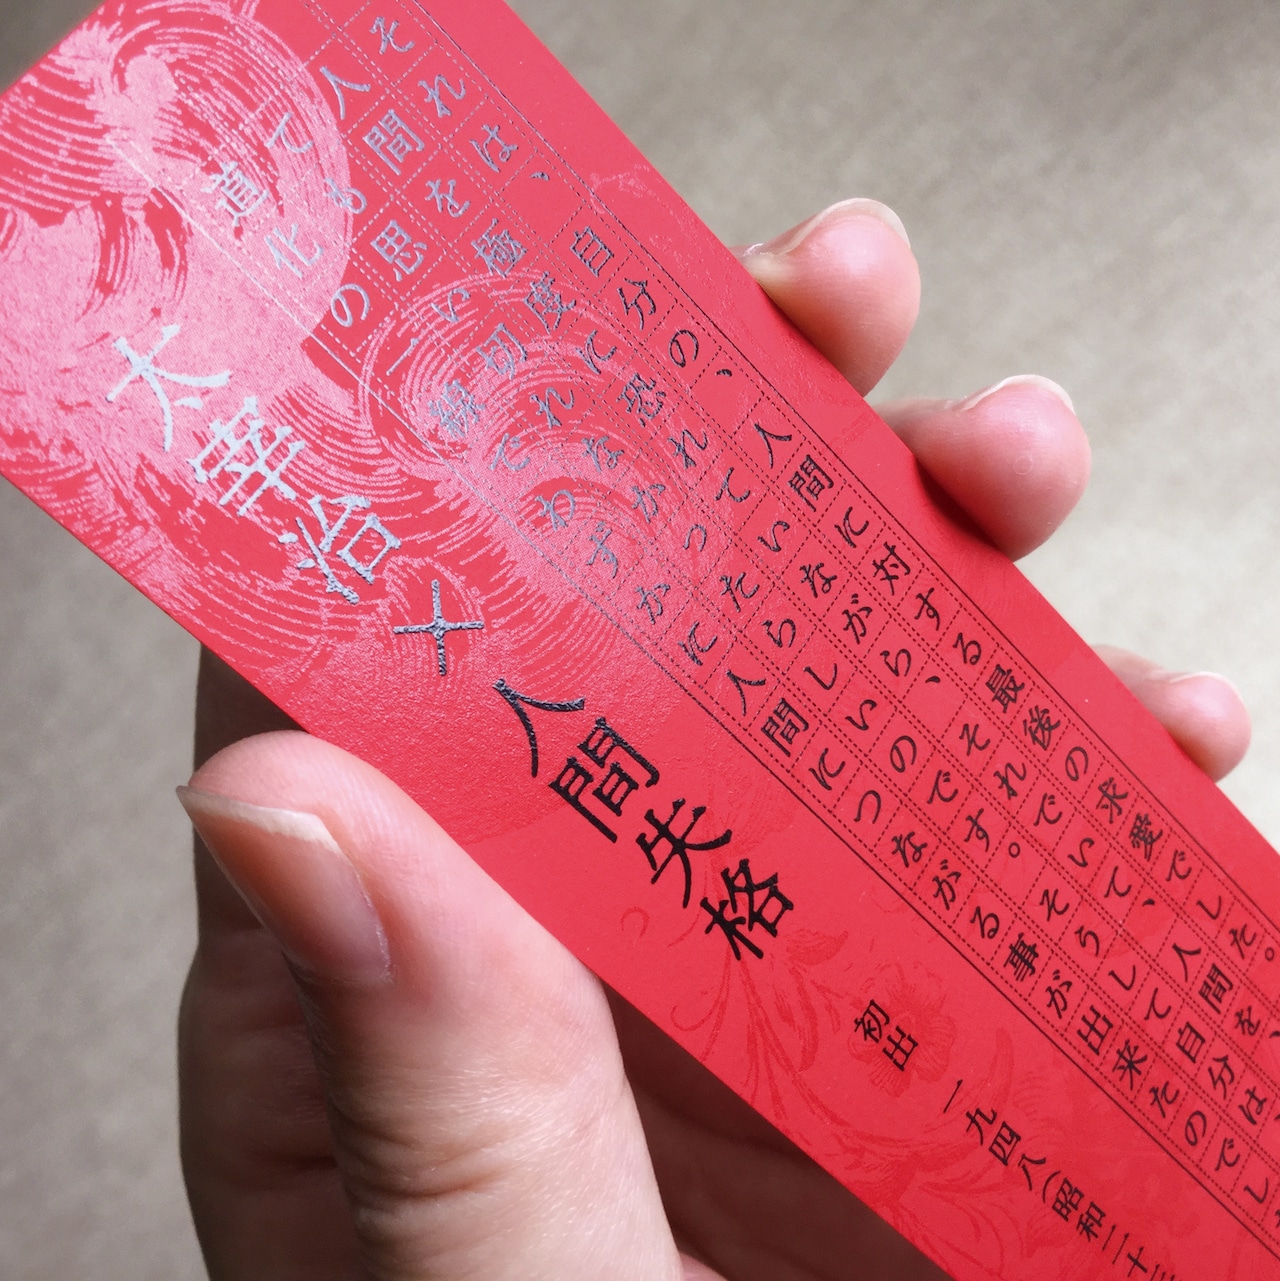 それは、自分の、人間に対する最後の求愛でした。
人間を極度に恐れていながら、それでいて、人間を、
ても思い切れなかったらしいのです。そうして自分は
道化の一線でわずかに人間につながる事が出来たのでし
太宰治×人間失格
初出 一九四八(昭和二十三